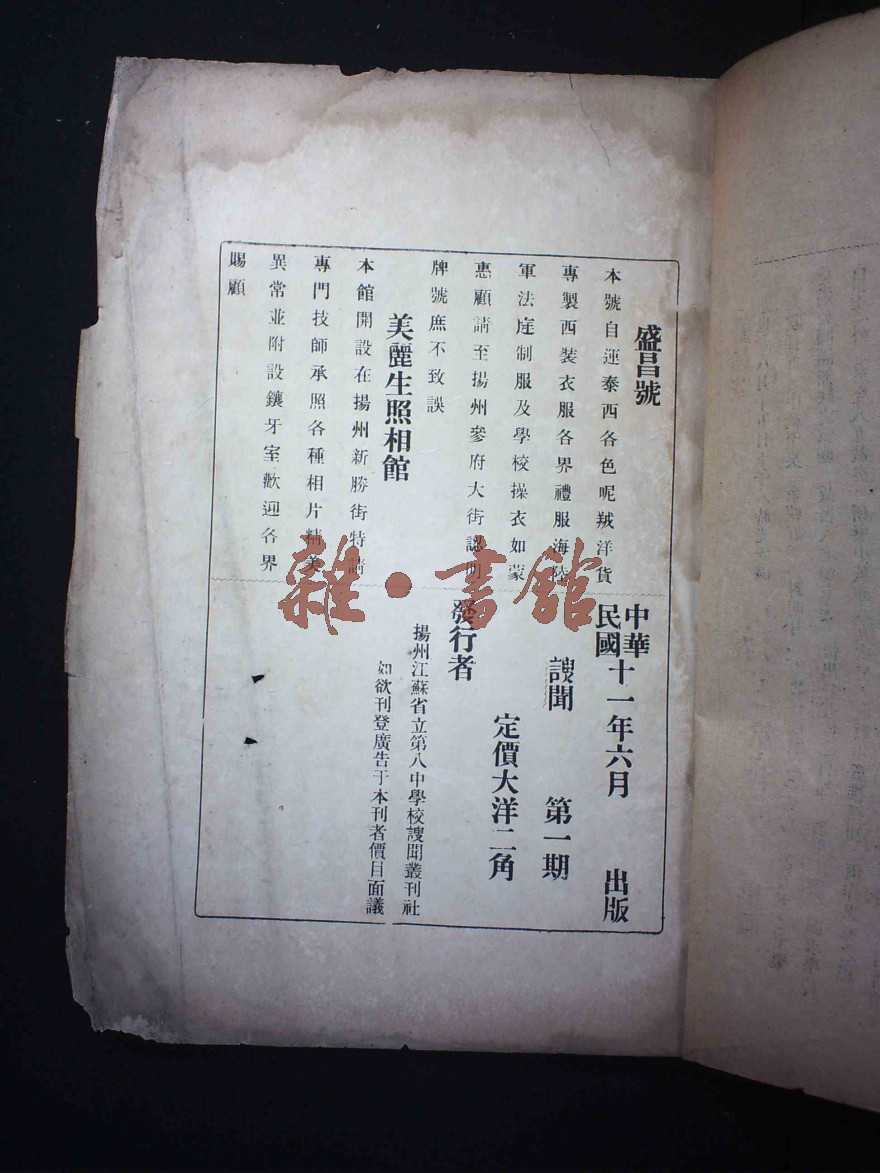 盛昌號
本號自運泰西各色呢羢洋貨
專製西裝衣服各界禮服海陸
軍法庭制服及學校操衣如蒙
惠顧請至揚州參府大街認明
牌號庶不致誤
美麗生照相館
本館開設在揚州新勝街特請
專門技師承照各種相片精美
異常並附設鑲牙室歡迎各界
賜顧
中華民國十一年六月 出版
謏聞 第一期
定價大洋二角
發行者
揚州江蘇省立第八中學校謏聞叢刊社
如欲刊登廣告于本刊者價目面議
雜·書館